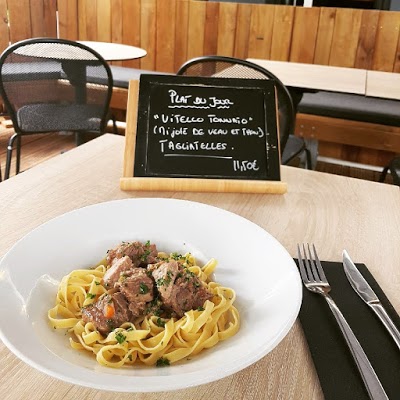 PLAT DU JOUR
"VITELLO TONNATO"
(MIJOTÉ DE VEAU ET THON)
TAGLIATELLES.
11,50€